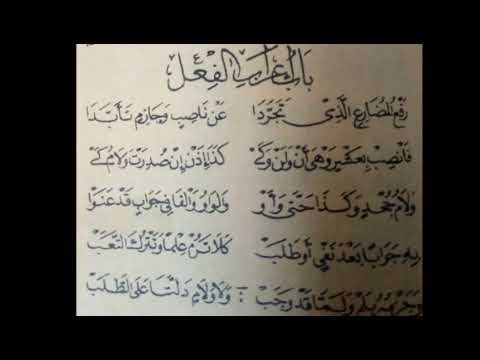 باب اعراب الفعل
رفع المضارع الذى تجردا عن ناصب وجازم تأبدا
فانصب بعشر وهى أن ولن وكى كذا إذن إن صدرت ولام كى
ولام جحد وكذا حتى وأو والواو والفا فى جواب قد عنوا
به جوابا بعد نفى أو طلب كلا ترم علما وتترك التعب
وجزمه بلم ولما قد وجب ولا ولام دلتا على الطلب